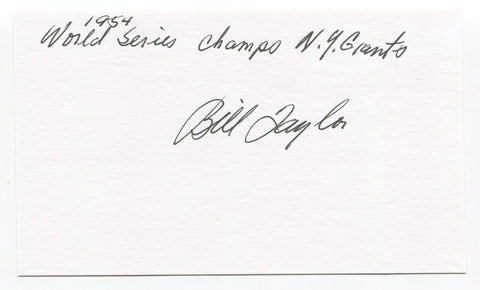 1954
World Series Champs N.Y. Giants
Bill Taylor